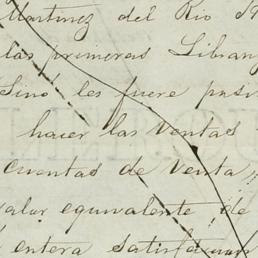 Martinez del Rio
las primeras Libran
Sinó les fuere posi
hacer las ventas
cuentas de venta
valor equivalente de
entera satisfaccion